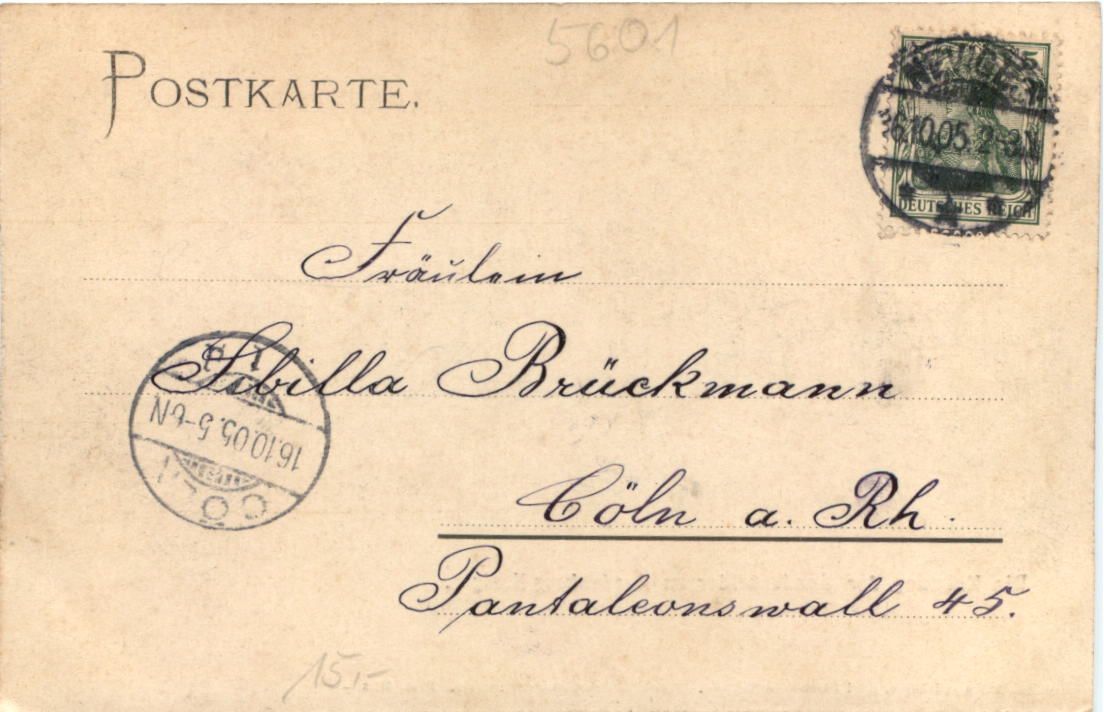 5601
POSTKARTE.
5
6.10.05. 2-3N
DEUTSCHES REICH
Fräulein
Sibilla Brückmann
16.10.05. 5-6N
CÖLN
Cöln a. Rh.
Pantaleonswall 45.
15.-